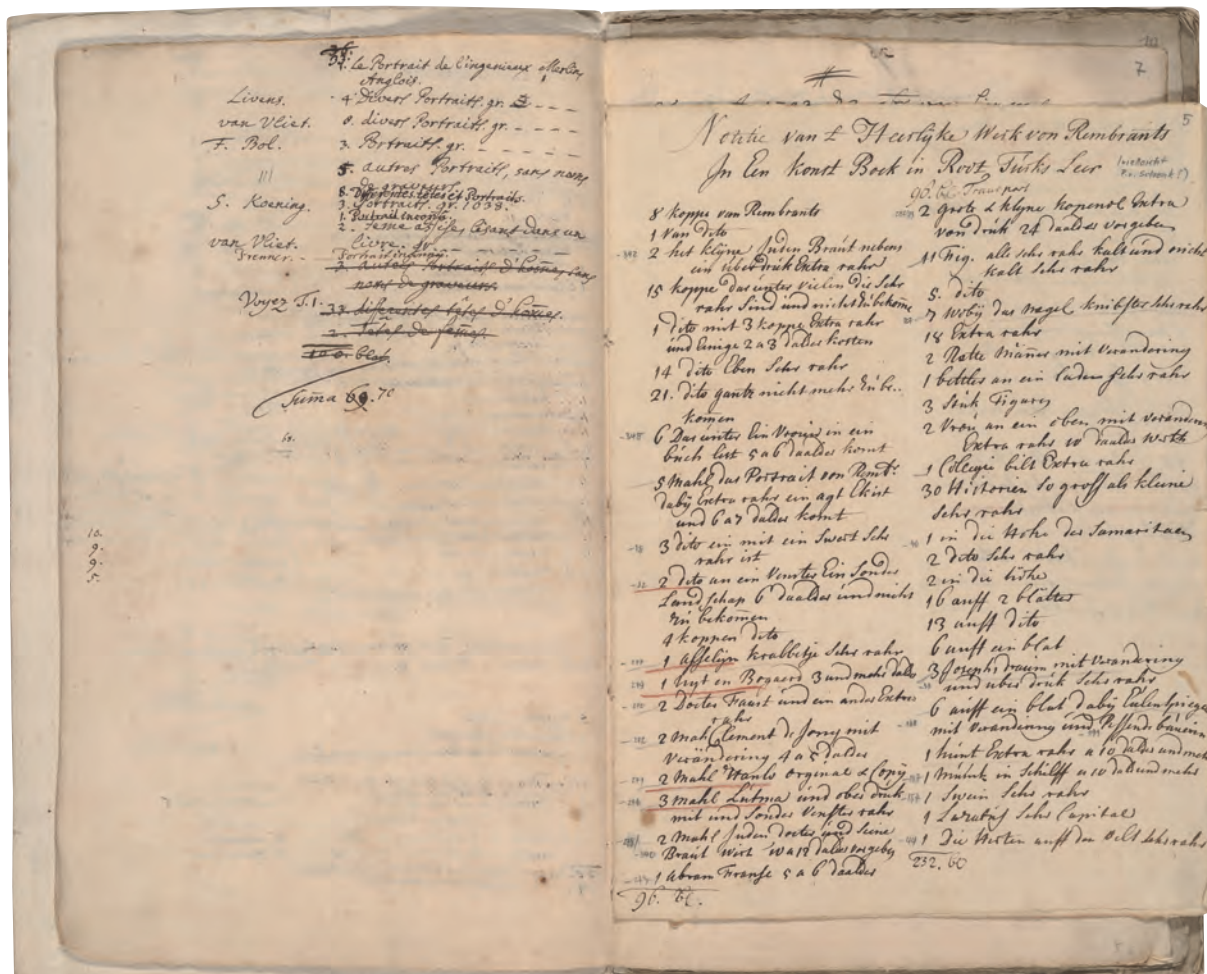 37. Le Portrait de l'ingenieux Merlin,
Anglois.
Livens. 4 Divers Portraits. gr. – – –
van Vliet. 8. divers Portraits. gr. – – – –
F. Bol. 3. Portraits. gr. – – – –
5. autres Portraits, sans noms
de graveurs.
8. Differentes têtes et Portraits.
S. Koening. 3. Portraits. gr. 1638.
1. Portrait incong.
2. Feme assise, lisant dans un
van Vliet. livre. gr. –
Frenner. – Portrait incong.
3. autres Portraits d'homes, sans
noms de graveurs.
Voyez T. 1. 33. differentes têtes d'homes.
2. Tetes de femes.
blat.
Suma 69. 70
69.
10.
9.
9.
5.
7
5
Notitie van t Heerlyke Werk von Rembrants
In Een Konst Boek in Root Turks Leer
8 koppe van Rembrants
1 Van dito
2 het klyne Juden Braut nebens
ein uberdruk Extra rahr
15 koppe darunter vielen die sehr
rahr sind und nicht zu bekome
1 dito mit 3 koppe Extra rahr
und Einige 2 a 3 dalder kosten
14 dito Eben sehr rahr
21. dito gantz nicht mehr zu be..
komen
6 Darunter Ein Vrouw in ein
buch list 5 a 6 daalder komt
5 mahl das Portrait von Remb:
daby Extra rahr ein agt Ekist
und 6 a 7 dalder komt
3 dito ein mit ein Swert Sehr
rahr ist
2 dito an ein Venster Ein Sonder
Landschap 6 daalder und nicht
zu bekomen
4 koppen dito
1 Asselijn krabbetje Sehr rahr
1 Uyt en Bogaerd 3 und mehr dald
2 Docter Faust und ein ander Extra
rahr
2 mahl Clement de Jonge mit
Verändering 4 a 5 dalder
2 Mahl Hanlo orginal & Copy
3 mahl Lutma und ober druk
mit und Sonder Venster rahr
2 mahl Juden docter und Seine
Braut wirt 10 a 12 dalder vorgeben
1 Abram Franse 5 a 6 daalder
96. Bl.
96. Bl. Transport
2 grote & klyne kopenol Extra
von druk 24 daalder vorgeben
11 Fig. alle sehr rahr kalt und nicht
kalt Sehr rahr
5. dito
7 Woby das Nagel knibster sehr rahr
18 Extra rahr
2 Natte Männer mit Verandering
1 bettler an ein laden Sehr rahr
3 Stuk Figuren
2 Vrou an ein oben mit Verändern
Extra rahr 10 daalder werth
1 Collegie bilt Extra rahr
30 Historien So gross als kleine
Sehr rahr
1 in die Hohe der Samaritaen
2 dito Sehr rahr
2 in die höhe
16 auff 2 blätter
13 auff dito
6 auff ein blat
3 Josephs draum mit Verandering
und uber druk Sehr rahr
6 auff ein blat daby Eulenspiegel
mit Verandering und
1 hunt Extra rahr a 10 dalder und meh
1 in Schilff a 10 dald und mehr
1 Swein Sehr rahr
1 Lazarus Sehr Capital
1 Die Herten auff den Velt sehr rahr
232. bl